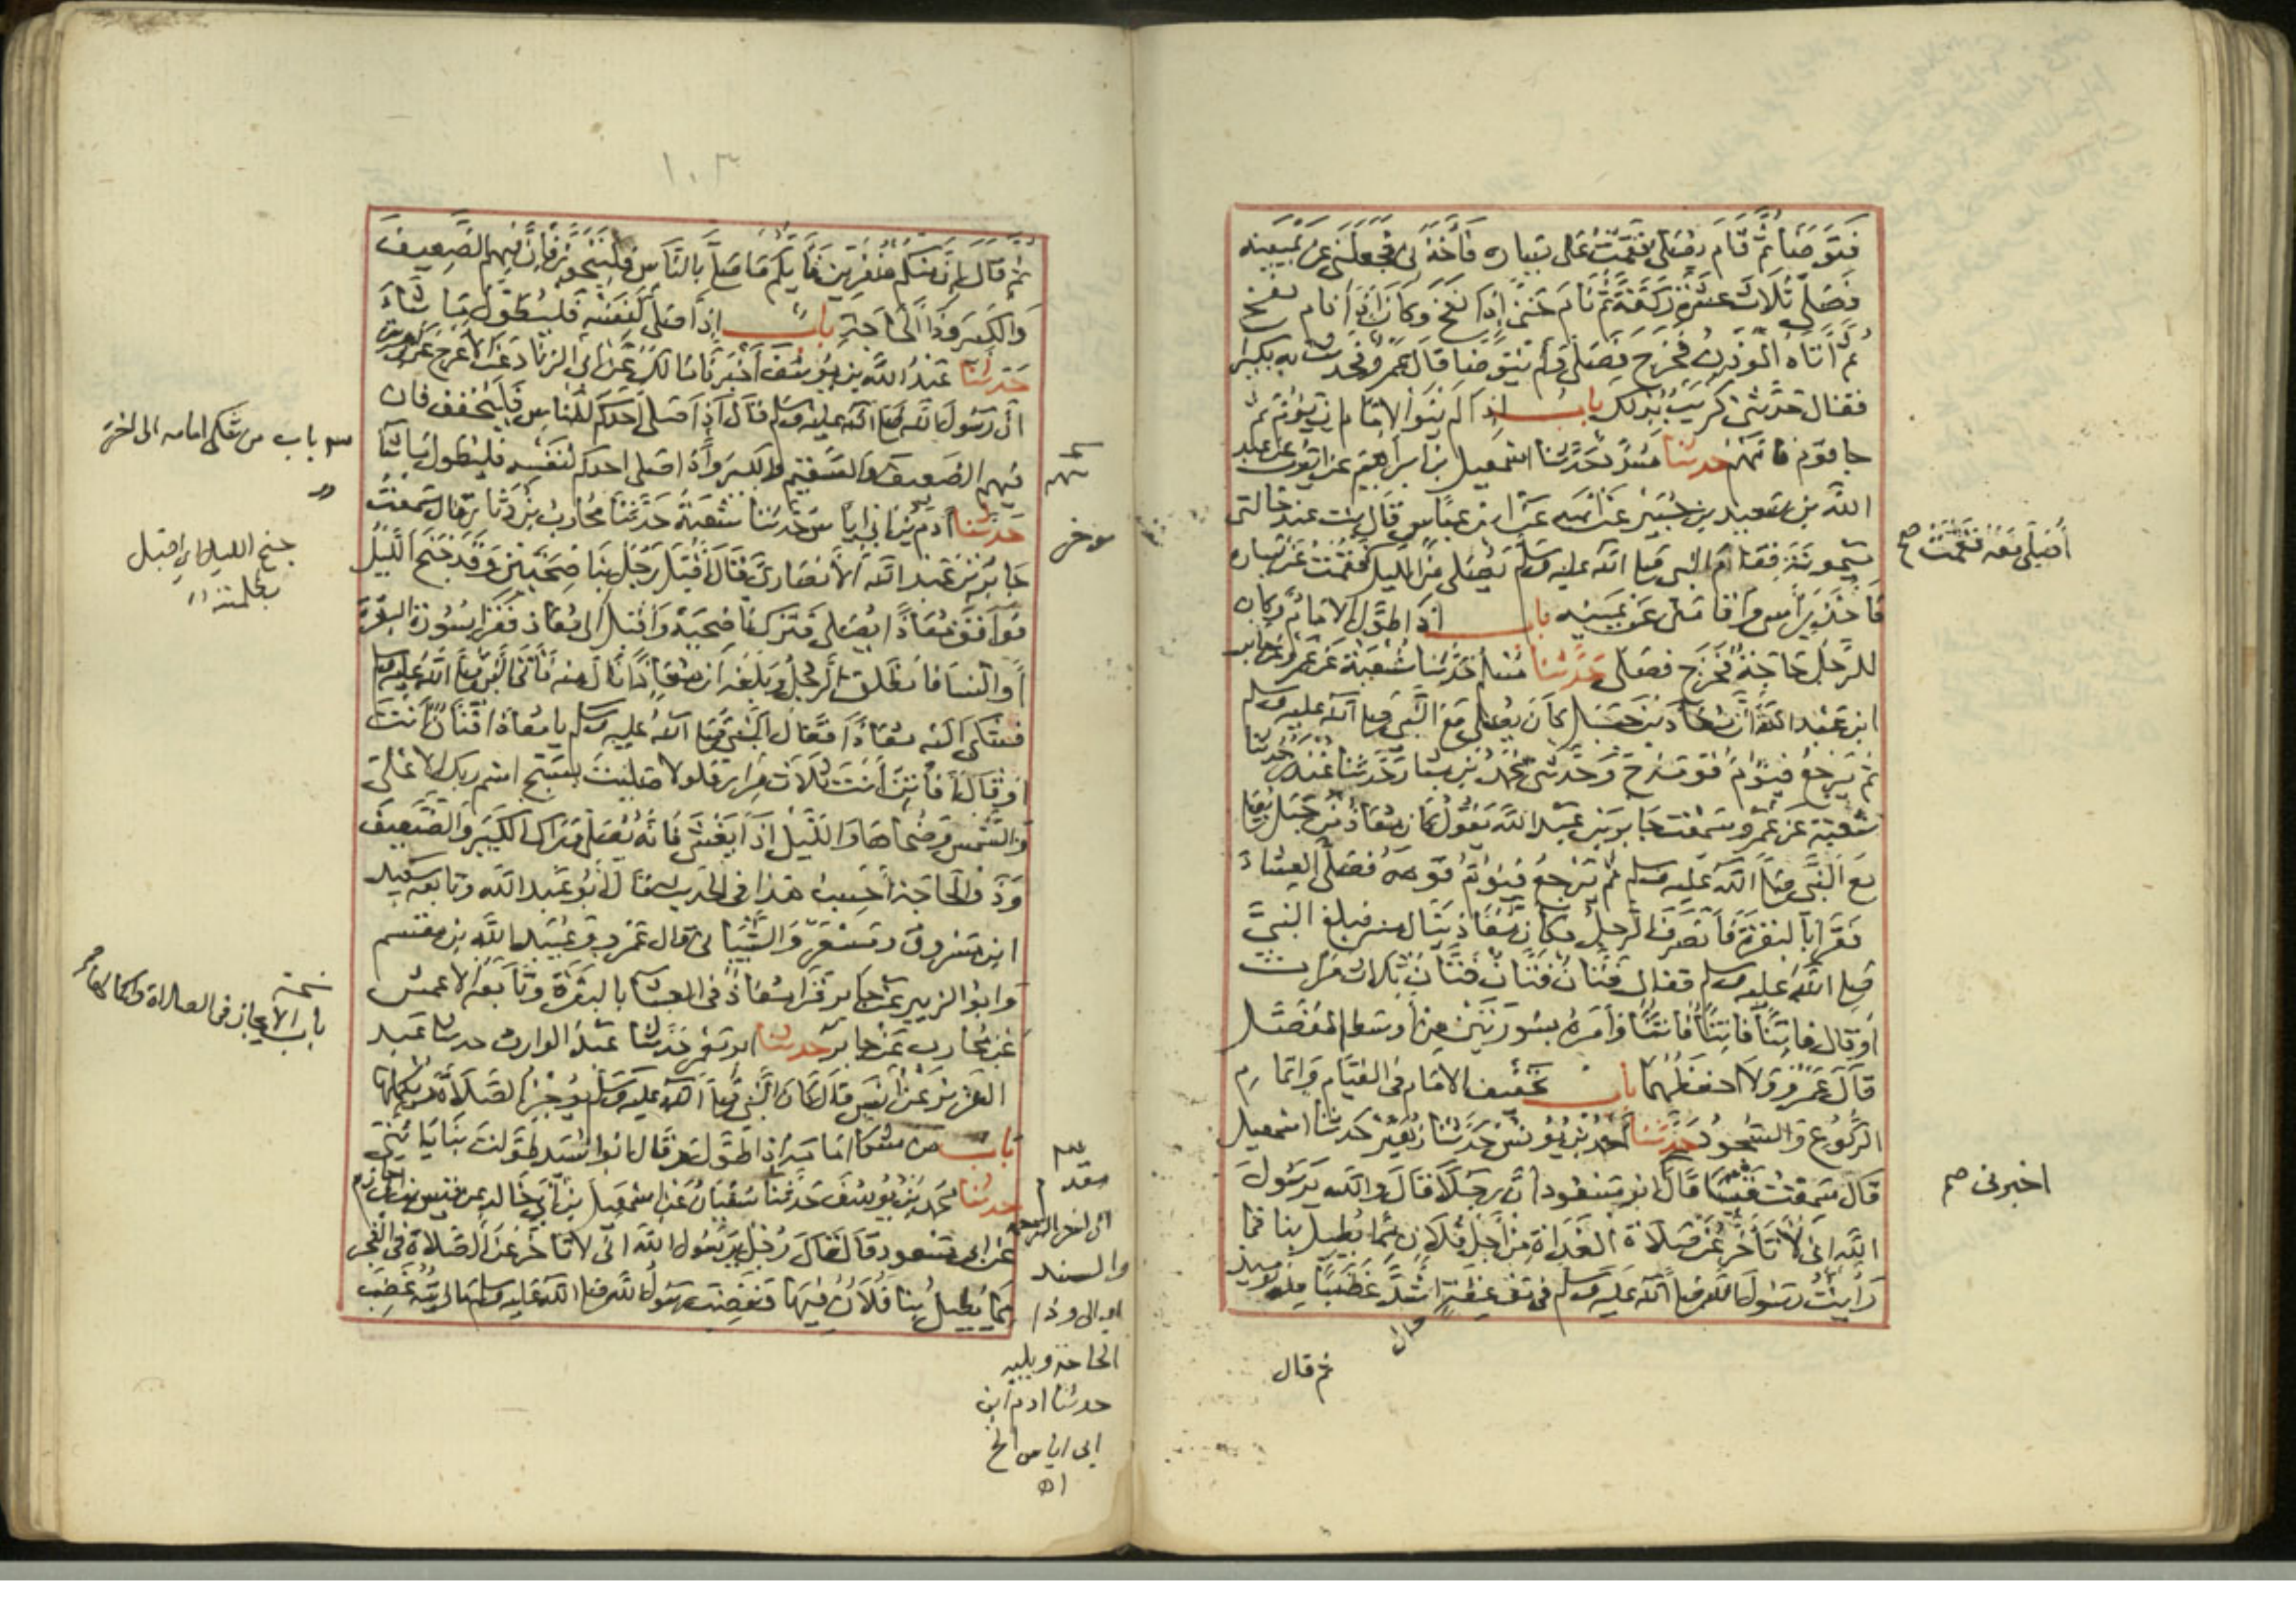 فتوضأ ثم قام يصلى فقمت على يساره فأخذنى فجعلنى عن يمينه
فصلى ثلاث عشرة ركعة ثم نام حتى نفخ وكان اذا نام نفخ
ثم أتاه المؤذن فخرج فصلى ولم يتوضا قال عمرو فحدثت به بكيرا
فقال حدثنى كريب بذلك باب اذا لم ينو الامام ان يؤم ثم
جا قوم فامهم حدثنا مسدد حدثنا اسمعيل بن ابراهيم عن ايوب عن عبد
الله بن سعيد بن جبير عن ابيه عن ابن عباس قال بت عند خالتى
ميمونة فقام النبى صلى الله عليه وسلم يصلى من الليل فقمت عن يساره
فاخذ براسى واقامنى عن يمينه باب اذا طول الامام وكان
للرجل حاجة فخرج فصلى حدثنا مسلم حدثنا شعبة عن عمرو عن جابر
ابن عبد الله أن معاذ بن جبل كان يصلى مع النبى صلى الله عليه وسلم
ثم يرجع فيؤم قومه ح وحدثنى محمد بن بشار حدثنا غندر حدثنا
شعبة عن عمرو سمعت جابر بن عبد الله يقول كان معاذ بن جبل يصلى
مع النبى صلى الله عليه وسلم ثم يرجع فيؤم قومه فصلى العشاء
فقرا بالبقرة فانصرف الرجل فكان معاذ ينال منه فبلغ النبى
صلى الله عليه وسلم فقال فتان فتان فتان ثلاث مرات
او قال فاتنا فاتنا فاتنا وأمره بسورتين من أوسط المفصل
قال عمرو ولا احفظهما باب تخفيف الامام فى القيام واتمام
الركوع والسجود حدثنا احمد بن يونس حدثنا زهير حدثنا اسمعيل
قال سمعت قيسا قال ابو مسعود ان رجلا قال والله يرسول
الله انى لأتأخر عن صلاة الغداة من أجل فلان مما يطيل بنا فما
رأيت رسول الله صلى الله عليه وسلم فى موعظة اشد غضبا منه يوميذ
ثم قال
أصلى معه فقمت صح
اخبرنى صح
١٠٣
ثم قال إن منكم منفرين فأيكم ما صلى بالناس فليتجوز فإن فيهم الضعيف
والكبير وذا الحاجة باب إذا صلى لنفسه فليطول ما شاء
حدثنا عبد الله بن يوسف أخبرنا مالك عن ابى الزناد عن الاعرج عن
ان رسول الله صلى الله عليه وسلم قال اذا صلى أحدكم للناس فليخفف فان
فيهم الضعيف والسقيم والكبير واذا صلى احدكم لنفسه فليطول ما شا
حدثنا آدم بن ابى إياس حدثنا شعبة حدثنا محارب بن دثار قال سمعت
جابر بن عبد الله الأنصارى قال أقبل رجل بناضحين وقد جنح الليل
فوافق معاذا يصلى فترك ناضحيه وأقبل الى معاذ فقرا بسورة البقرة
أو النسا فانطلق الرجل وبلغه أن معاذا نال منه فأتى النبى صلى الله عليه وسلم
فشكى اليه معاذا فقال النبى صلى الله عليه وسلم يا معاذ افتان انت
او قال أفاتن أنت ثلاث مرار فلولا صليت بسبح اسم ربك الاعلى
والشمس وضحاها والليل إذا يغشى فانه يصلى وراك الكبير والضعيف
وذو الحاجة أحسب هذا فى الحديث قال أبو عبد الله وتابعه سعيد
ابن مسروق ومسعر والشيبانى قال عمرو وعبيد الله بن مقسم
وابو الزبير عن جابر قرا معاذ فى العشا بالبقرة وتابعه الاعمش
عن محارب عن جابر حدثنا ابو معمر حدثنا عبد الوارث حدثنا عبد
العزيز عن أنس قال كان النبى صلى الله عليه وسلم يوجز الصلاة ويكملها
باب من شكا امامه اذا طول وقال ابو اسيد طولت بنا يا بنى
حدثنا محمد بن يوسف حدثنا سفيان عن اسمعيل بن أبى خالد عن قيس بن ابى حازم
عن ابى مسعود قال قال رجل يرسول الله انى لاتاخر عن الصلاة فى الفجر
مما يطيل بنا فلان فيها فغضب رسول الله صلى الله عليه وسلم ما رايته غضب
باب من شكى امامه الى اخره
جنح الليل اى اقبل
بظلمته
نسخة
باب الايجاز فى الصلاة واكمالها
موخر
مقدم
الى اخر الترجمة
والسند
الى وذا
الحاجة ويليه
حدثنا ادم ابن
ابى اياس الخ
اه